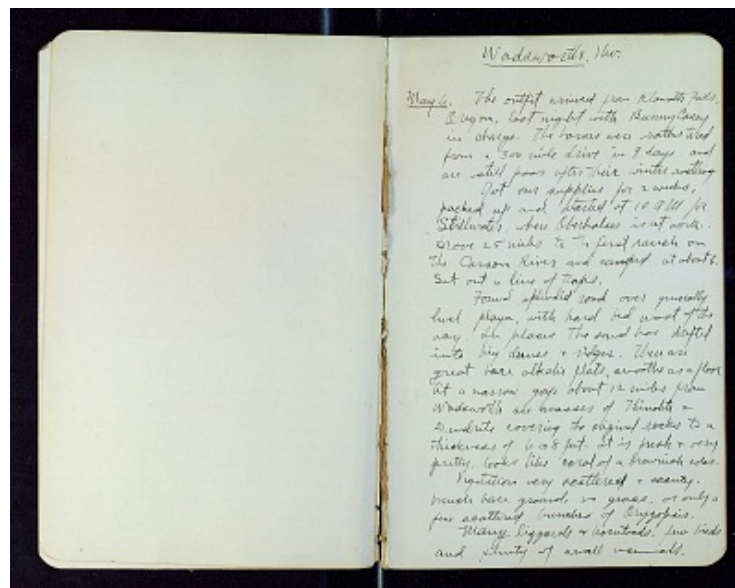 Wadsworth, Nev.
May 6. The outfit arrived from Klamath Falls,
Oregon, last night with Bunny Casey
in charge. The horses were rather tired
from a 300 mile drive in 9 days and
are still poor after their winter
Got our supplies for 2 weeks,
packed up and started at 10 AM for
Stillwater, where Oberholser is at work.
Drove 25 miles to the first ranch on
the Carson River and camped at about 6.
Set out a line of traps.
Found splendid road over generally
level playa, with hard bed most of the
way. In places the sand has drifted
into big dunes & ridges. There are
great bare alkali flats, smooth as a floor
At a narrow gap about 12 miles from
Wadsworth are masses of Thinolite &
Dendrite covering the original rocks to a
thickness of 6 or 8 feet. It is fresh & very
pretty, looks like coral of a brownish color.
Vegetation very scattered & scanty.
much bare ground, no grass, or only a
few scattered bunches of Oryzopsis.
Many lizzards & horntoads, few birds
and plenty of small mammals.